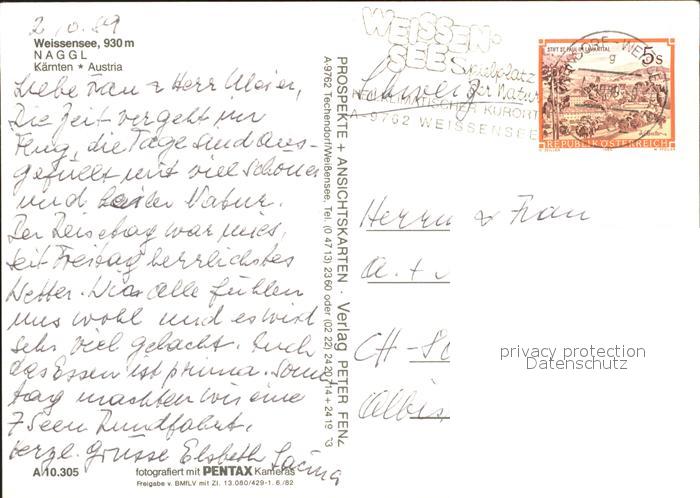 2.10.89
Weissensee, 930 m
NAGGL
Kärnten * Austria
Liebe Frau u Herr Meier,
Die Zeit vergeht im
Flug, die Tage sind aus-
gefüllt mit viel Schönem
und Natur.
Der Reisetag war mies,
seit Freitag herrlichstes
Wetter. Wir alle fühlen
uns wohl und es wird
sehr viel gelacht. Auch
das Essen ist prima. Sonn
tag machten wir eine
7 Seen Rundfahrt.
Herzl. Grüsse Elsbeth
A 10.305
fotografiert mit PENTAX Kameras
Freigabe v. BMfLV mit Zl. 13.080/429-1.6./82
PROSPEKTE + ANSICHTSKARTEN · Verlag PETER FEN
A-9762 Techendorf/Weißensee, Tel. (0 47 13) 23 60 oder (02 22) 24 20 14 + 24 19
WEISSEN-
SEE Spielplatz
der Natur
HEILKLIMATISCHER KURORT
A-9762 WEISSENSEE
Schweiz
STIFT ST. PAUL IM LAVANTTAL
5 S
REPUBLIK ÖSTERREICH
Herrn u Frau
A. +
CH-
Albis
privacy protection
Datenschutz